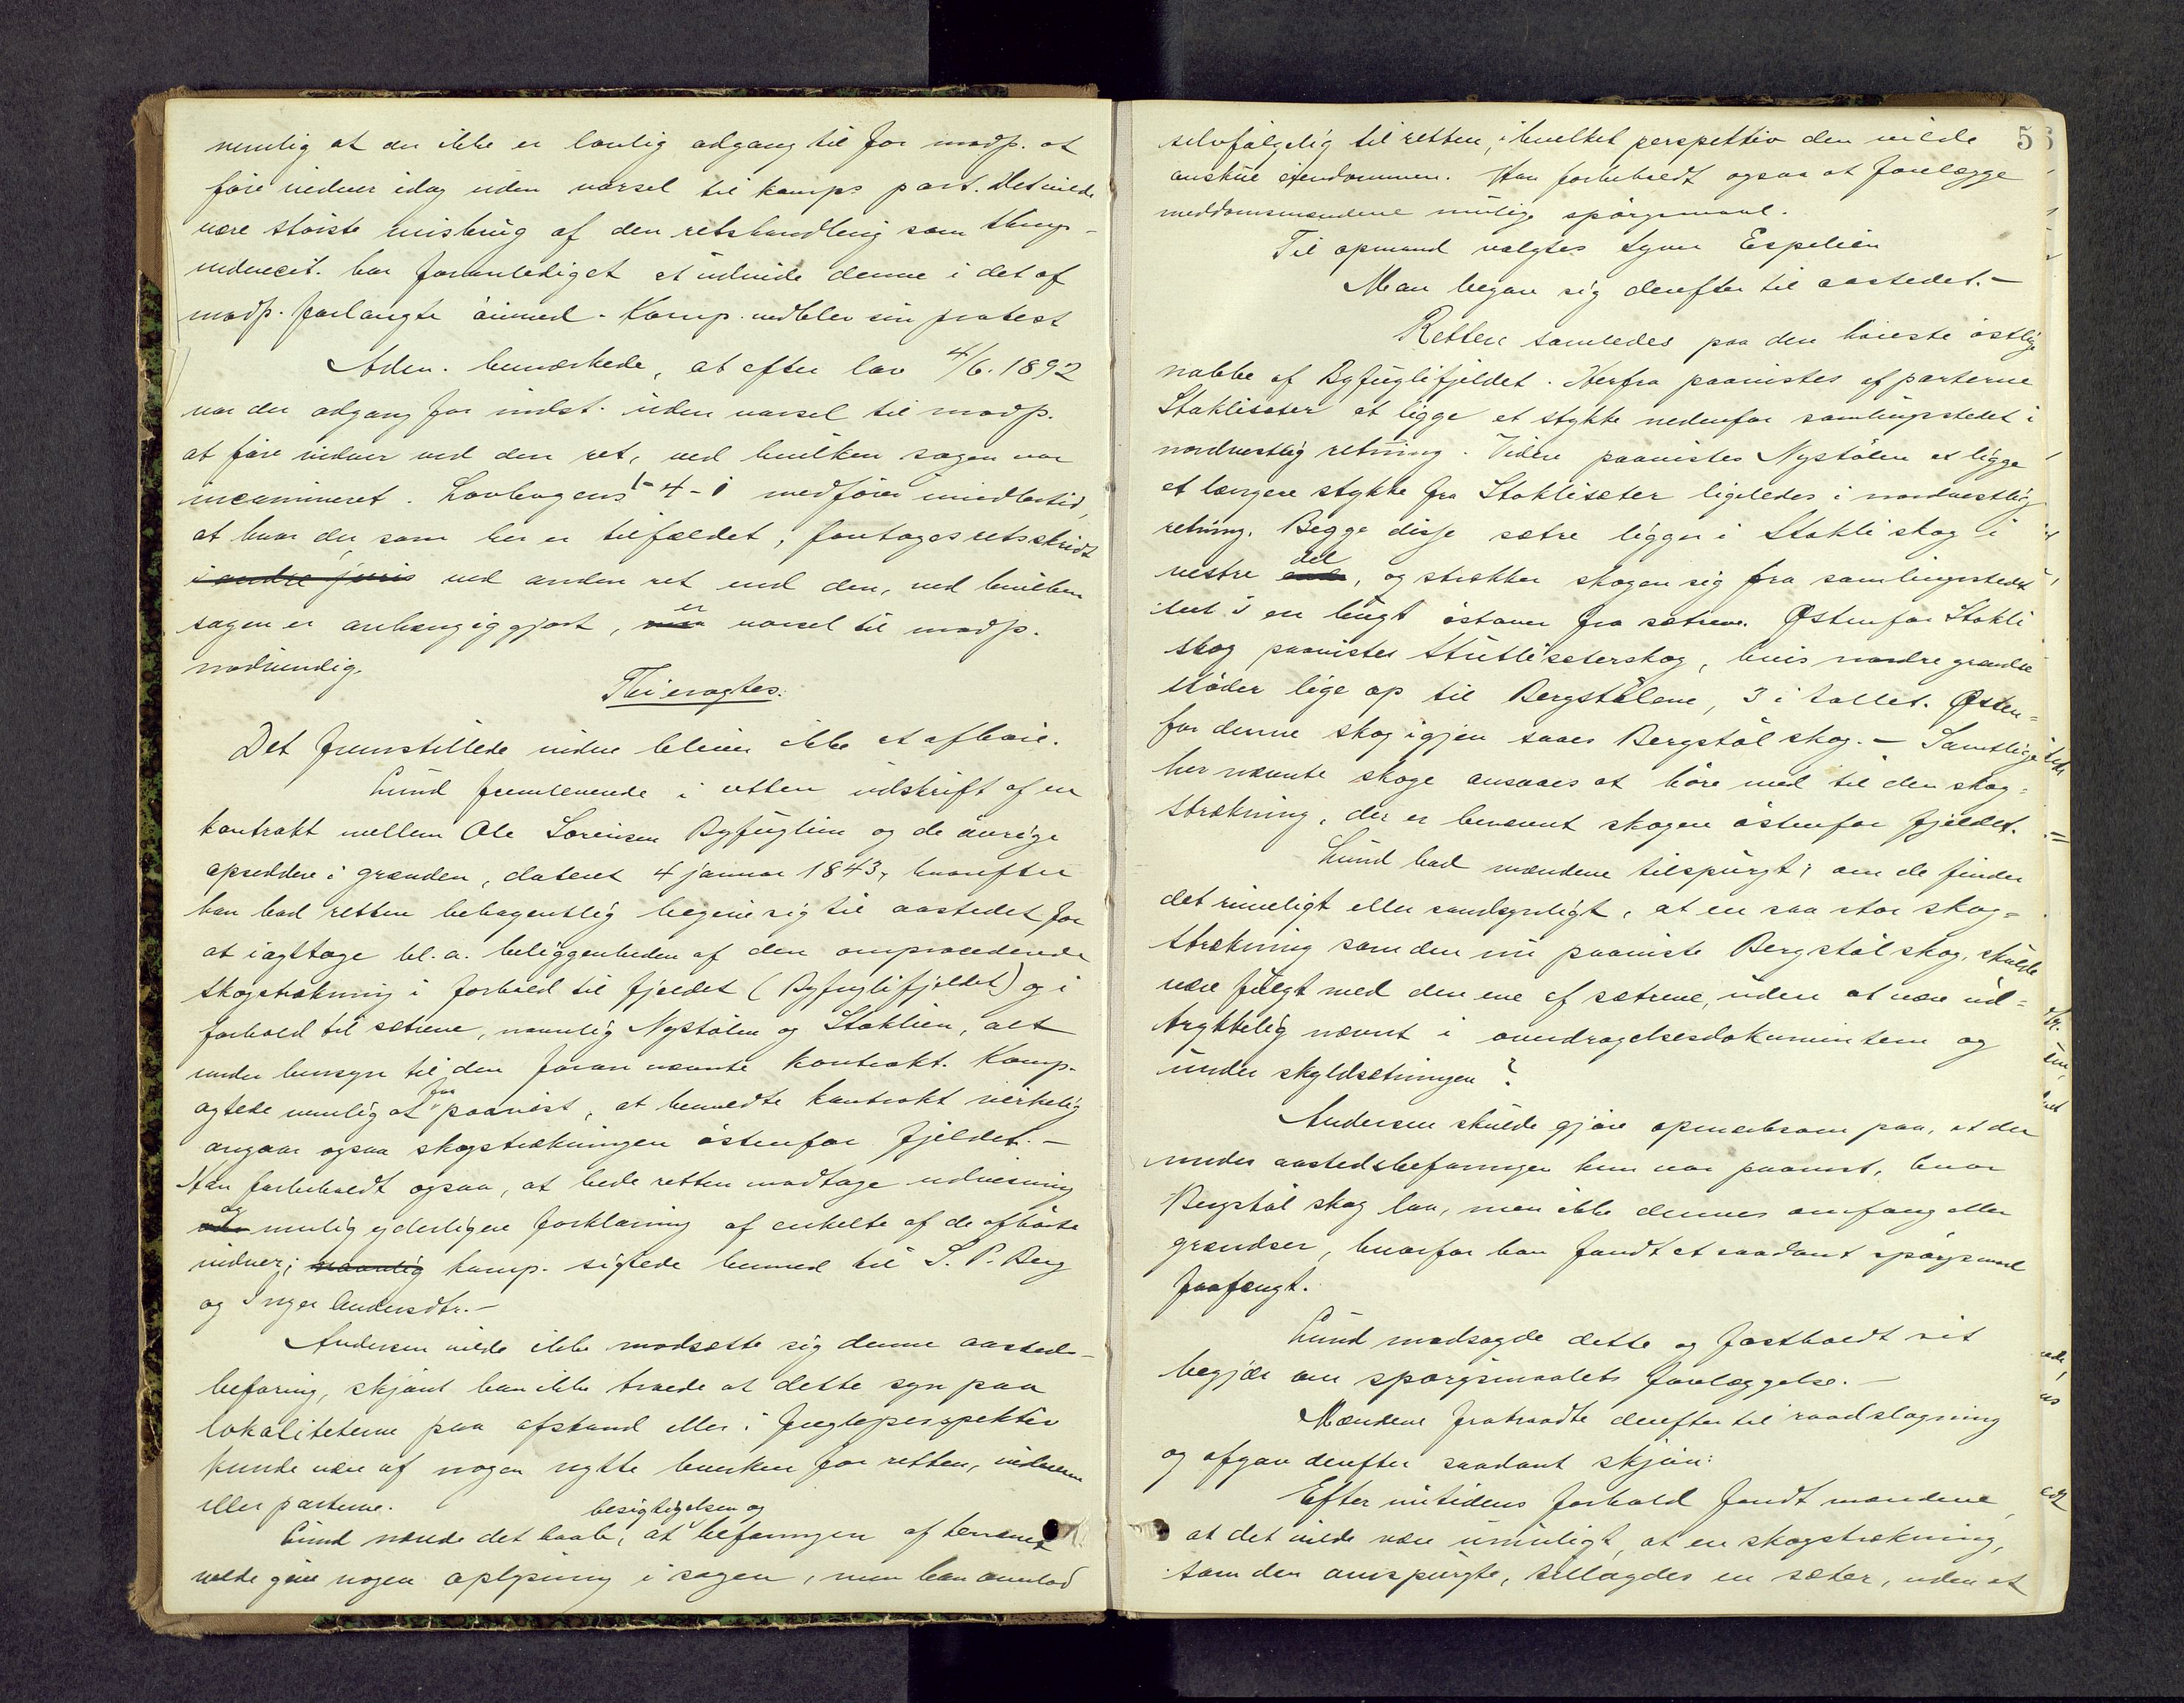 nemlig at der ikke er lovlig adgang til for modp. at
føre vidner idag uden varsel til komps part. Det vilde
være største misbrug af den retshandling som
har foranlediget at udvide denne i det af
modp. forlangte øiemed. Komp. nedblev sin protest
Aden. bemærkede, at efter lov 4/6. 1892
var der adgang for indst. uden varsel til modp.
at føre vidner ved den ret, ved hvilken sagen var
incamineret. Lovbogens 1-4-1 medfører imidlertid,
at hvor der som her er tilfældet, foretages retsskridt
i andre juris ved anden ret end den, ved hvilken
sagen er anhængiggjort, er varsel til modp.
nødvendig.
Thi eragtes:
Det fremstillede vidne bliver ikke at afhøre.
Lund fremlæverede i retten udskrift af en
kontrakt mellem Ole Sørensen Byfuglien og de øvrige
opsiddere i grænden, dateret 4 januar 1843, hvorefter
han bad retten behagentlig begive sig til aastedet for
at iagttage bl. a. beliggenheden af den omprocederede
skogstrækning i forhold til fjeldet (Byfuglifjeldet) og i
forhold til sætrene, navnlig Nystølen og Stoklien, alt
under hensyn til den foran nævnte kontrakt. Komp.
agtede nemlig at faa paavist, at bemeldte kontrakt virkelig
angaar ogsaa skogstrækningen østenfor fjeldet. –
Han forbeholdt ogsaa, at bede retten modtage udvisning
og mulig yderligere forklaring af enkelte af de afhørte
vidner; navnlig komp. sigtede hermed til S. P. Berg
og Inger Andersdtr. –
Andersen vilde ikke modsætte sig denne aasteds-
befaring, skjønt han ikke troede at dette syn paa
lokaliteterne paa afstand eller i fugleperspektiv
kunde være af nogen nytte hverken for retten, vidnerne
eller parterne.
besigtigelsen og
Lund nærede det haab, at befaringen af terrænet
vilde give nogen oplysning i sagen, men han overlod
5
selvfølgelig til retten, i hvilket perspektiv den vilde
anskue ejendommen. Han forbeholdt ogsaa at forelægge
meddomsmændene mulige spørgsmaal.
Til opmand valgtes Syver Espelien
Man begav sig derefter til aastedet. –
Retten samledes paa den høieste østlige
nabbe af Byfuglifjeldet. Herfra paavistes af parterne
Stoklisæter at ligge et stykke nedenfor samlingsstedet i
nordvestlig retning. Videre paavistes Nystølen at ligge
et længere stykke fra Stoklisæter ligeledes i nordvestlig
retning. Begge disse sætre ligger i Stokli skog i
del
vestre, og strækker skogen sig fra samlingsstedet
i en bugt østover fra sætrene. Østenfor Stokli
skog paavistes Stutlisæterskog, hvis nordre grændse
støder lige op til Bergstølene, 3 i tallet. Østen-
for denne skog igjen saaes Bergstøl skog. – Samtlige
her nævnte skoge ansaaes at høre med til den skog-
strækning, der er benævnt skogen østenfor fjeldet.
Lund bad mændene tilspurgt; om de finder
det rimeligt eller sandsynligt, at en saa stor skog-
strækning som den nu paaviste Bergstøl skog, skulde
være fulgt med den ene af sætrene, uden at være ud-
trykkelig nævnt i overdragelsesdokumentene og
under skyldsætningen?
Andersen skulde gjøre opmerksom paa, at der
under aastedsbefaringen kun var paavist, hvor
Bergstøl skog laa, men ikke dennes omfang eller
grændser, hvorfor han fandt et saadant spørgsmaal
forfængt.
Lund modsagde dette og fastholdt sit
begjær om spørgsmaalets forelæggelse. –
Mændene fratraadte derefter til raadslagning
og afgav derefter saadant skjøn:
Efter nutidens forhold fandt mændene
at det vilde være umuligt, at en skogstrækning,
som den omspurgte, tillagdes en sæter, uden at